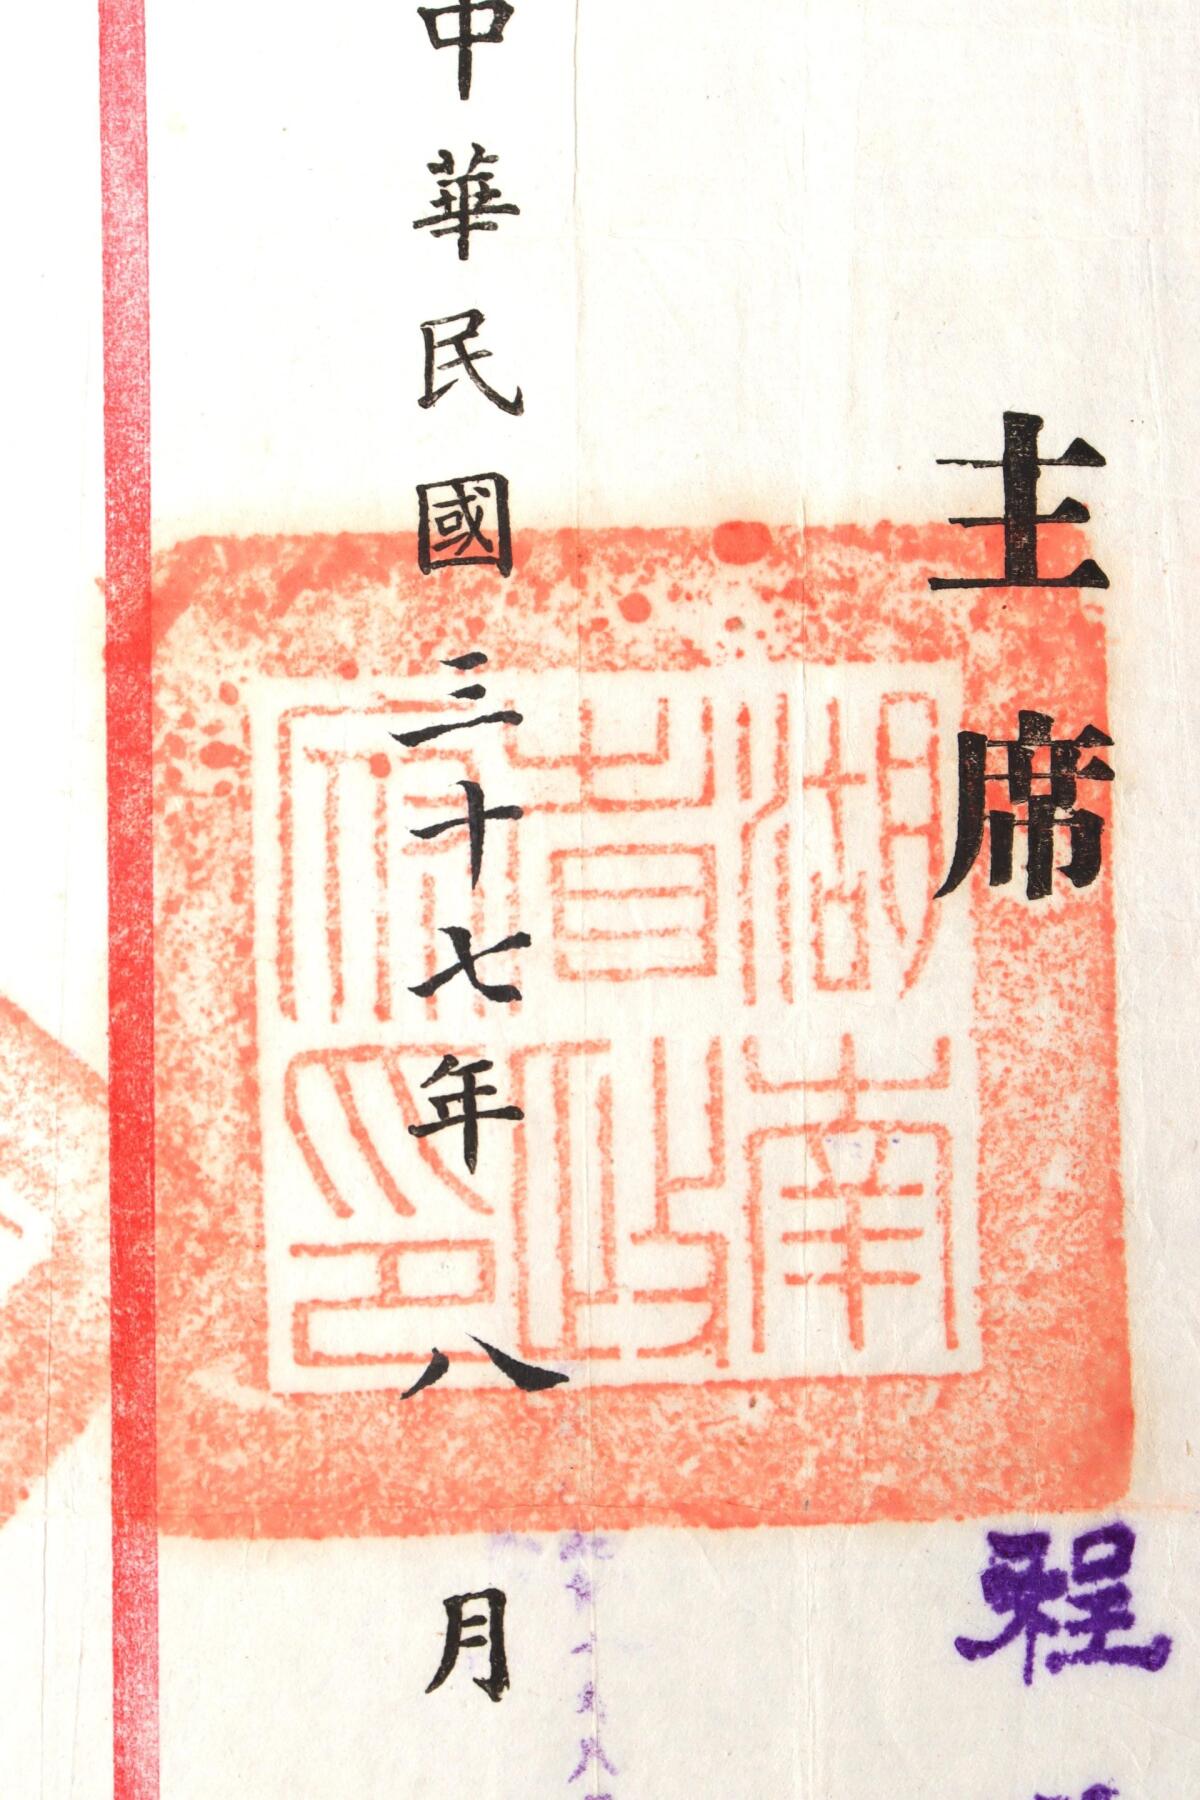 主席 程
湖南省政府印
中華民國三十七年八月